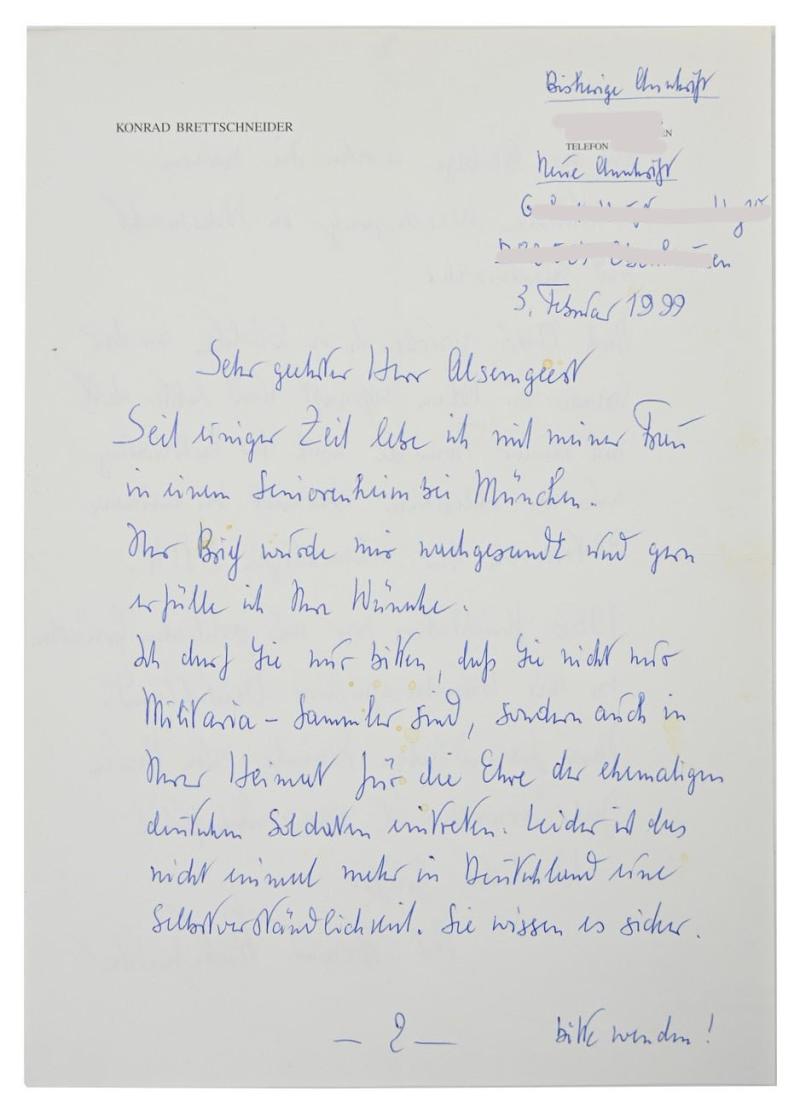 Bisherige Anschrift
KONRAD BRETTSCHNEIDER
EN
TELEFON
Neue Anschrift
en
3. Februar 1999
Sehr geehrter Herr Alsemgeest
Seit einiger Zeit lebe ich mit meiner Frau
in einem Seniorenheim bei München.
Ihr Brief wurde mir nachgesandt und gern
erfülle ich Ihre Wünsche.
Ich darf Sie nur bitten, daß Sie nicht nur
Militaria - Sammler sind, sondern auch in
Ihrer Heimat für die Ehre der ehemaligen
deutschen Soldaten eintreten. Leider ist das
nicht einmal mehr in Deutschland eine
Selbstverständlichkeit. Sie wissen es sicher.
- 2 - bitte wenden!